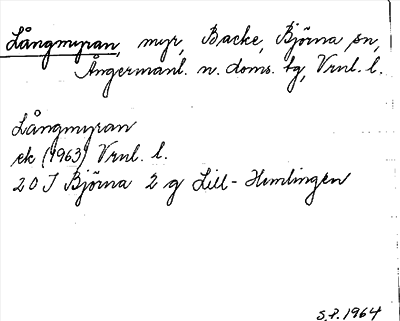 Långmyran, myr, Backe, Björna sn,
Ångermanl. n. doms. tg, Vrnl. l.
Långmyran
ek (1963) Vrnl. l.
20 J Björna 2 g Lill-Hemlingen
S.P. 1964